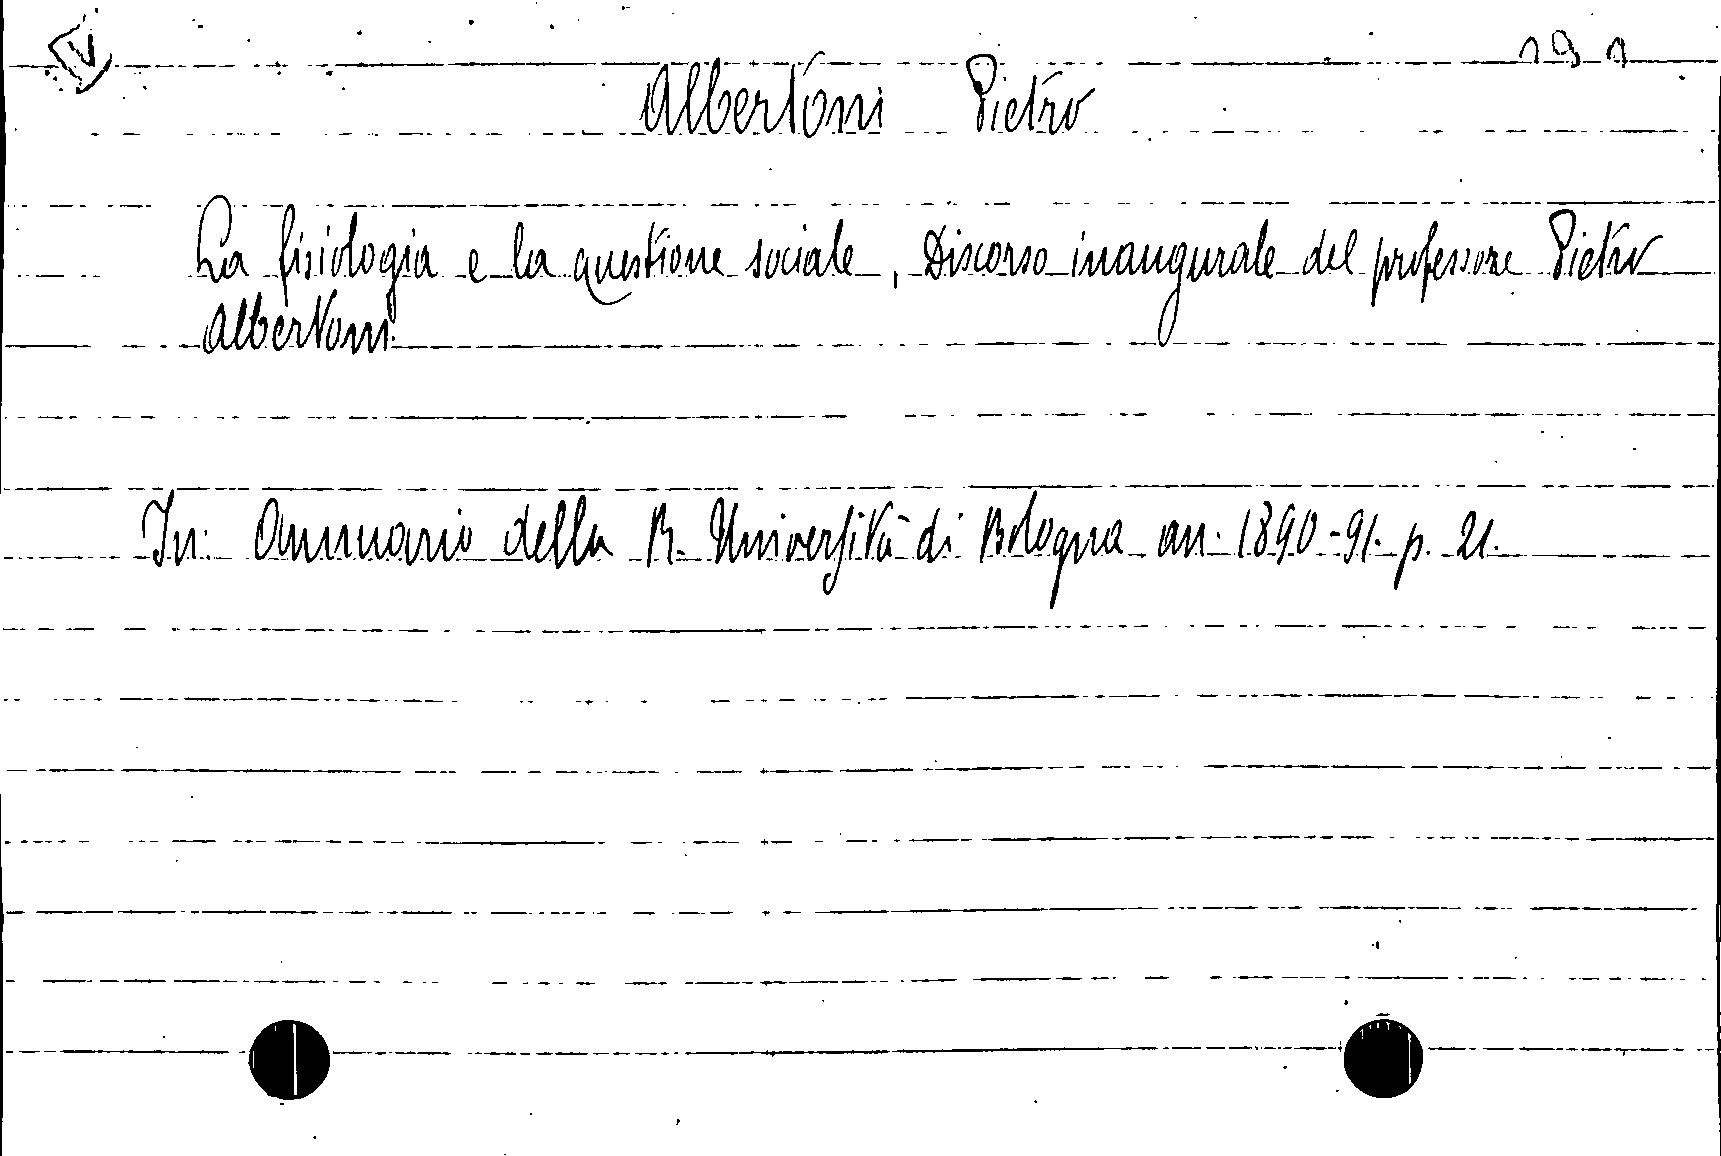 IV
191
Albertoni Pietro
La fisiologia e la questione sociale, Discorso inaugurale del professore Pietro
Albertoni.
In: Annuario della R. Università di Bologna an. 1890-91. p. 21.